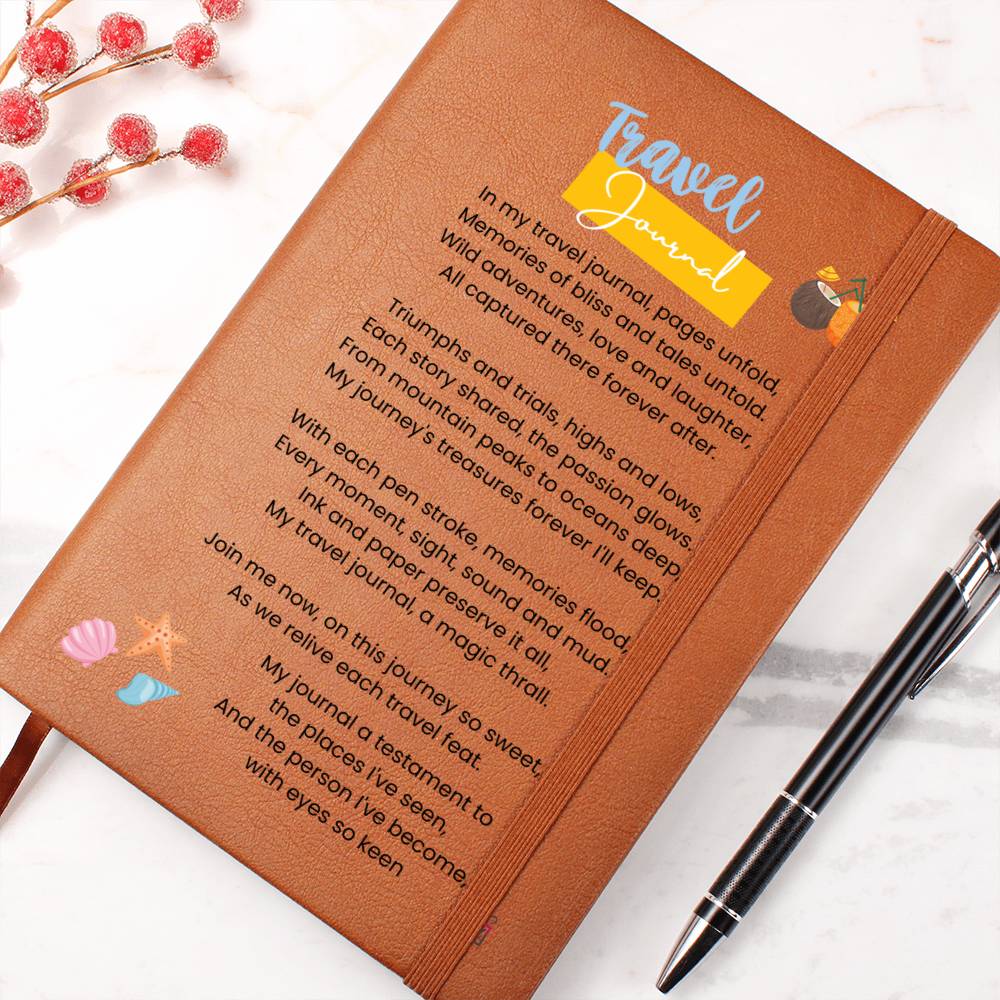 Travel
Journal
In my travel journal, pages unfold,
Memories of bliss and tales untold.
Wild adventures, love and laughter,
All captured there forever after.
Triumphs and trials, highs and lows,
Each story shared, the passion glows.
From mountain peaks to oceans deep,
My journey's treasures forever I'll keep.
With each pen stroke, memories flood,
Every moment, sight, sound and mud.
Ink and paper preserve it all,
My travel journal, a magic thrall.
Join me now, on this journey so sweet,
As we relive each travel feat.
My journal a testament to
the places I've seen,
And the person I've become,
with eyes so keen